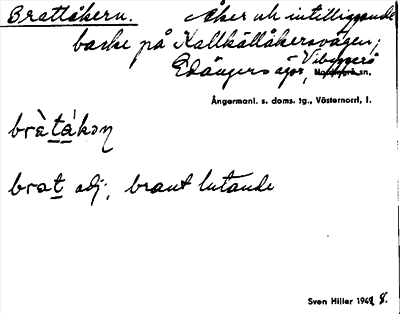 Brattåkern. Åker och intilliggande
backe på Kallkällåkersvägen,
Edångers ägor, Vibyggerå
sn.
Ångermanl. s. doms. tg., Västernorrl. l.
bràtákǝɳ
brat adj. brant lutande
Sven Hiller 1948.